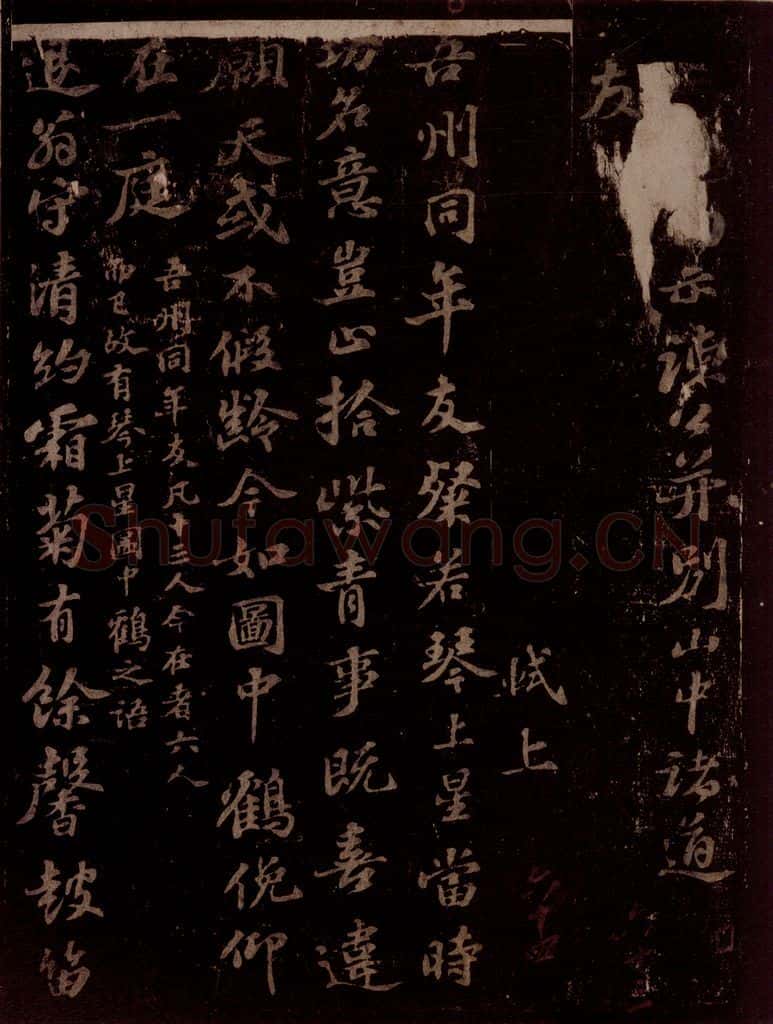 示并別山中諸道
友
軾上
吾州同年友粲若琴上星當時
功名意豈止拾紫青事既喜違
願天或不假齡今如圖中鶴俛仰
在一庭
吾州同年友凡十三人今在者六人
而已故有琴上星圖中鶴之語
退翁守清約霜菊有餘馨鼓笛
Shufawang.CN